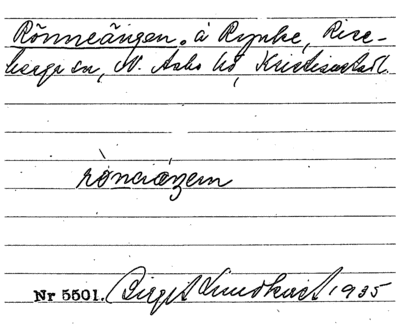 Rönneängen. å Rynke, Rise-
berga sn, N. Åsbo hd, Kristianstad l.
rònnǽŋen
Nr 5501. Birgit Lindkvist 1935